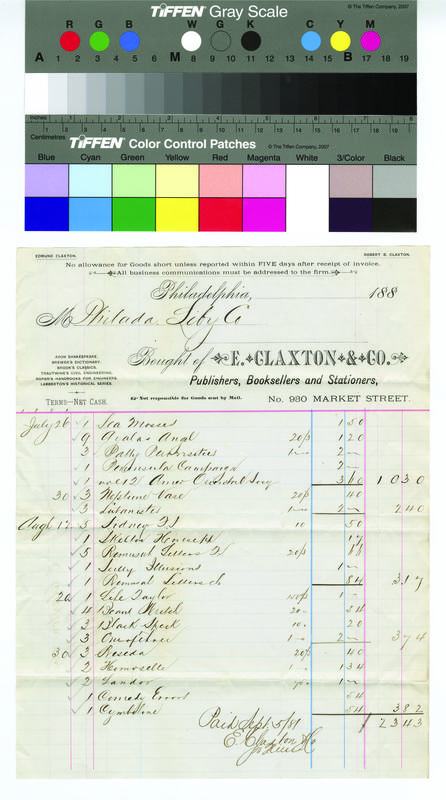 TIFFEN Gray Scale
© The Tiffen Company, 2007
R G B W G K C Y M
A 1 2 3 4 5 6 M 8 9 10 11 12 13 14 15 B 17 18 19
Inches 1 2 3 4 5 6 7 8
Centimetres 1 2 3 4 5 6 7 8 9 10 11 12 13 14 15 16 17 18 19
TIFFEN Color Control Patches
© The Tiffen Company, 2007
Blue Cyan Green Yellow Red Magenta White 3/Color Black
EDMUND CLAXTON. ROBERT S. CLAXTON.
No allowance for Goods short unless reported within FIVE days after receipt of invoice.
All business communications must be addressed to the firm.
Philadelphia, 188
M Philada. Liby Co
Bought of E. CLAXTON & CO.
AVON SHAKESPEARE.
BREWER'S DICTIONARY.
BROOK'S CLASSICS.
TRAUTWINE'S CIVIL ENGINEERING.
ROPER'S HANDBOOKS FOR ENGINEERS.
LABBERTON'S HISTORICAL SERIES.
Publishers, Booksellers and Stationers,
TERMS—NET CASH.
Not responsible for Goods sent by Mail.
No. 930 MARKET STREET.
July 26 1 Sea Mosses 1 50
9 20 1 20
3 Patty 2 —
1 Peninsular Campaign 2 —
1 vol 12 Amer 3 60 10 30
30 3 Neptune Vase 20 40
3 1 — 2 — 2 40
Augt 17 3 Sydney 10 50
1 Skelton 17
5 Remusat Letters 20
1 Sully Illusions 1 —
1 Remusat Letters 84 3 17
1 Life Taylor 1 —
4 20 54
3 Black Speck 10 20
3 1 — 2 — 3 74
30 3 Roseda 20 40
2 Homoselle 1 — 1 34
2 Landor 1 —
1 Comedy Errors 54
1 Cymbeline 54 3 82
23 43
Paid Sept 5/81
E. Claxton & Co